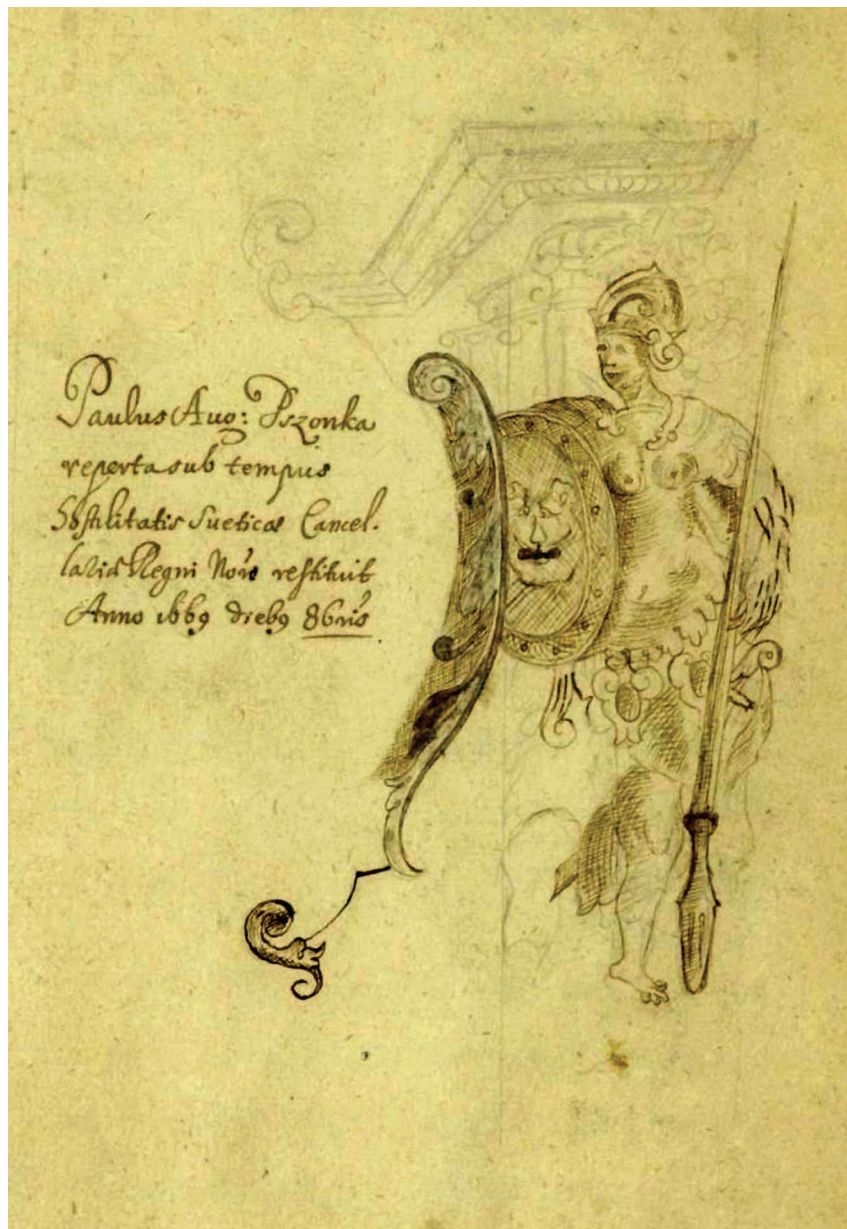 Paulus Aug: Pszonka
reperta sub tempus
Hostilitatis Sueticae Cancel-
laria Regni Nouis restituit
Anno 1669 dieb9 86ris